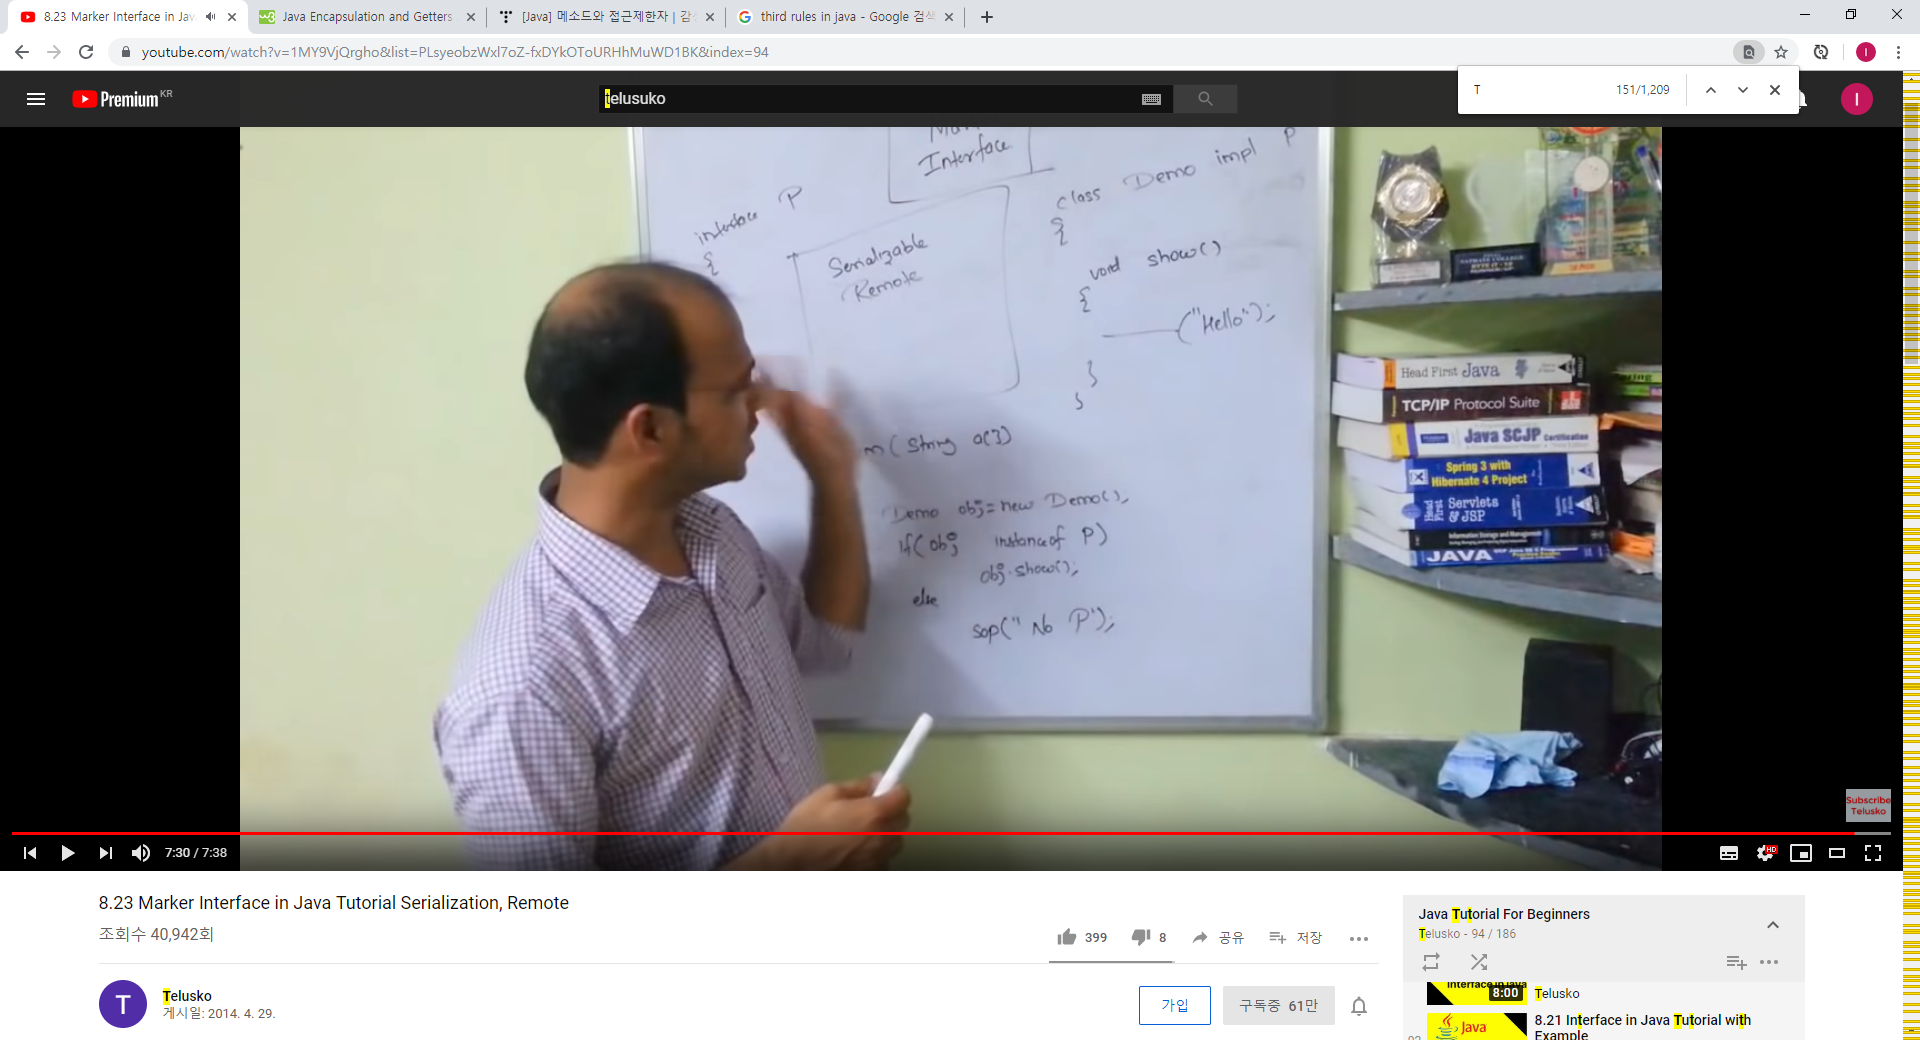 8.23 Marker Interface in Jav
Java Encapsulation and Getters
[Java] 메소드와 접근제한자 | 감
third rules in java - Google 검색
youtube.com/watch?v=1MY9VjQrgho&list=PLsyeobzWxl7oZ-fxDYkOToURHhMuWD1BK&index=94
T
151/1,209
Premium KR
telusuko
I
I
Interface
interface P
{
Serializable
Remote
class Demo impl P
{
void show()
{
("Hello");
}
}
n( String a[])
Demo obj = new Demo();
if( obj instanceof P)
obj.show();
else
sop(" No P");
Head First Java
TCP/IP Protocol Suite
Java SCJP Certification
Spring 3 with
Hibernate 4 Project
Head First Servlets
& JSP
Information Storage and Management
JAVA
Spring
Subscribe
Telusko
7:30 / 7:38
HD
8.23 Marker Interface in Java Tutorial Serialization, Remote
조회수 40,942회
399
8
공유
저장
T
Telusko
게시일: 2014. 4. 29.
가입
구독중 61만
Java Tutorial For Beginners
Telusko - 94 / 186
interface in java
8:00
Telusko
Java
8.21 Interface in Java Tutorial with
Example